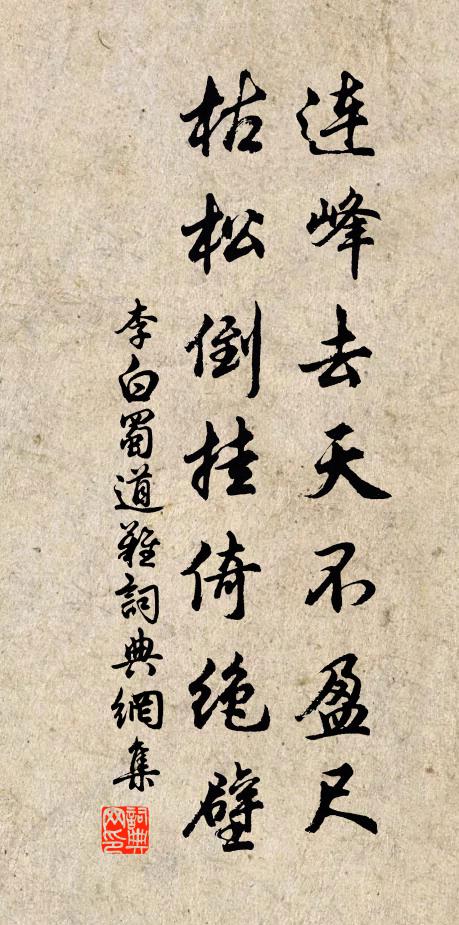 連峰去天不盈尺
枯松倒挂倚絶壁
李白蜀道難詞典網集
詞典网印